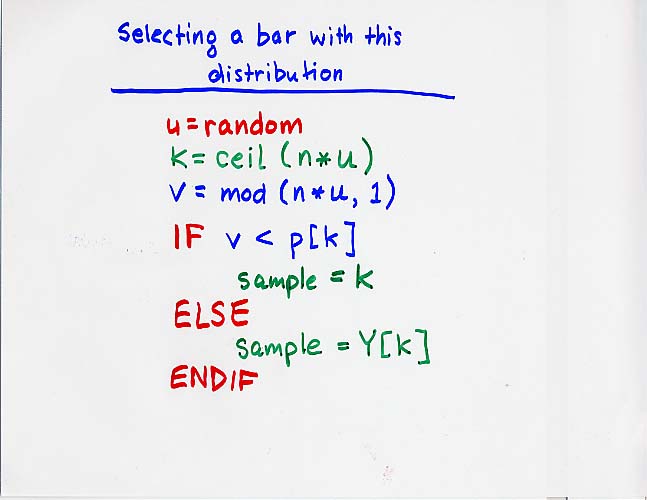 Selecting a bar with this
distribution
u = random
k = ceil (n*u)
v = mod (n*u, 1)
IF v < p[k]
sample = k
ELSE
sample = Y[k]
ENDIF